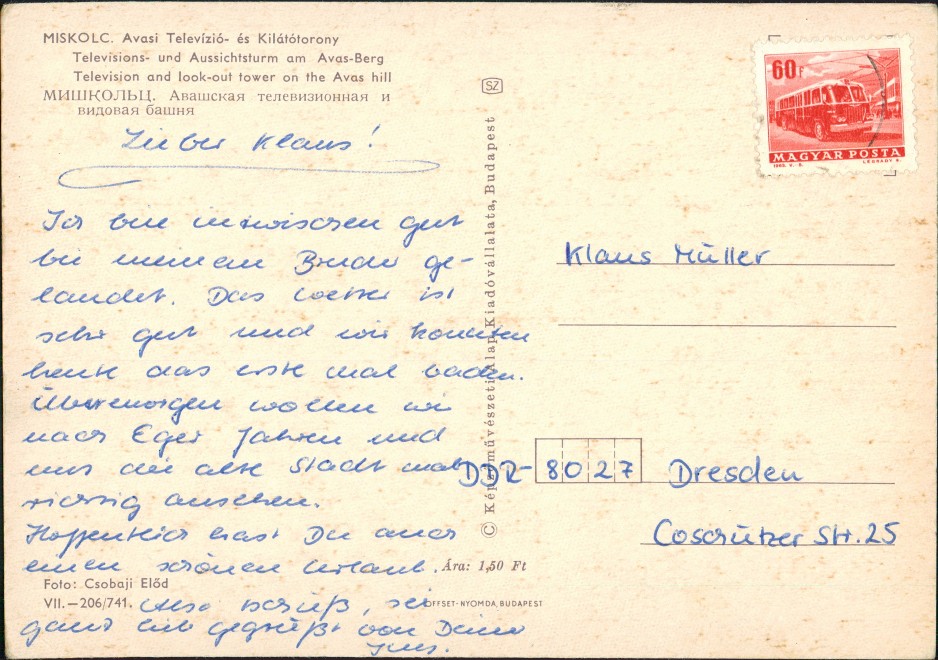 MISKOLC. Avasi Televízió- és Kilátótorony
Televisions- und Aussichtsturm am Avas-Berg
Television and look-out tower on the Avas hill
МИШКОЛЬЦ. Авашская телевизионная и
видовая башня
Lieber Klaus!
Ich bin inzwischen gut
bei meinem Bruder ge-
landet. Das Wetter ist
sehr gut und wir konnten
heute das erste mal baden.
Übermorgen wollen wir
nach Eger fahren und
uns die alte Stadt mal
richtig ansehen.
Hoffentlich hast Du auch
einen schönen Urlaub.
Also tschüß, sei
ganz lieb gegrüßt von Deiner
Foto: Csobaji Előd
VII.—206/741.
Ára: 1,50 Ft
OFFSET-NYOMDA, BUDAPEST
SZ
© Képzőművészeti Alap Kiadóvállalata, Budapest
60f
MAGYAR POSTA
LÉGRÁDY S.
Klaus Müller
DDR-8027 Dresden
Coschützer Str. 25